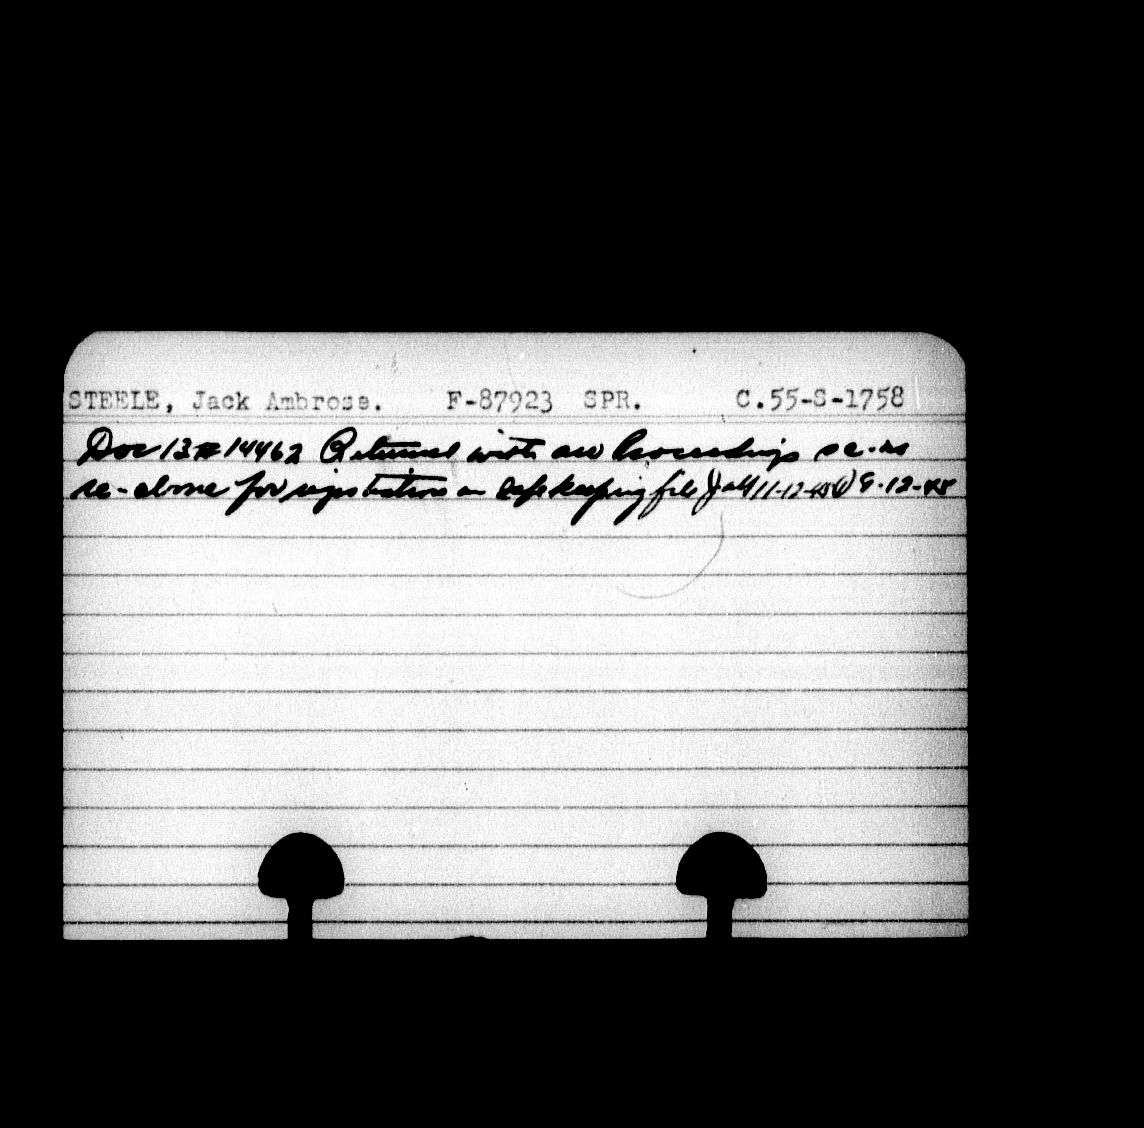 STEELE, Jack Ambrose. F-87923 SPR. C.55-S-1758
Doc 13 # 14462 Returned with Proceedings
re-above for registration on safe keeping file 11-12-45 8-12-45